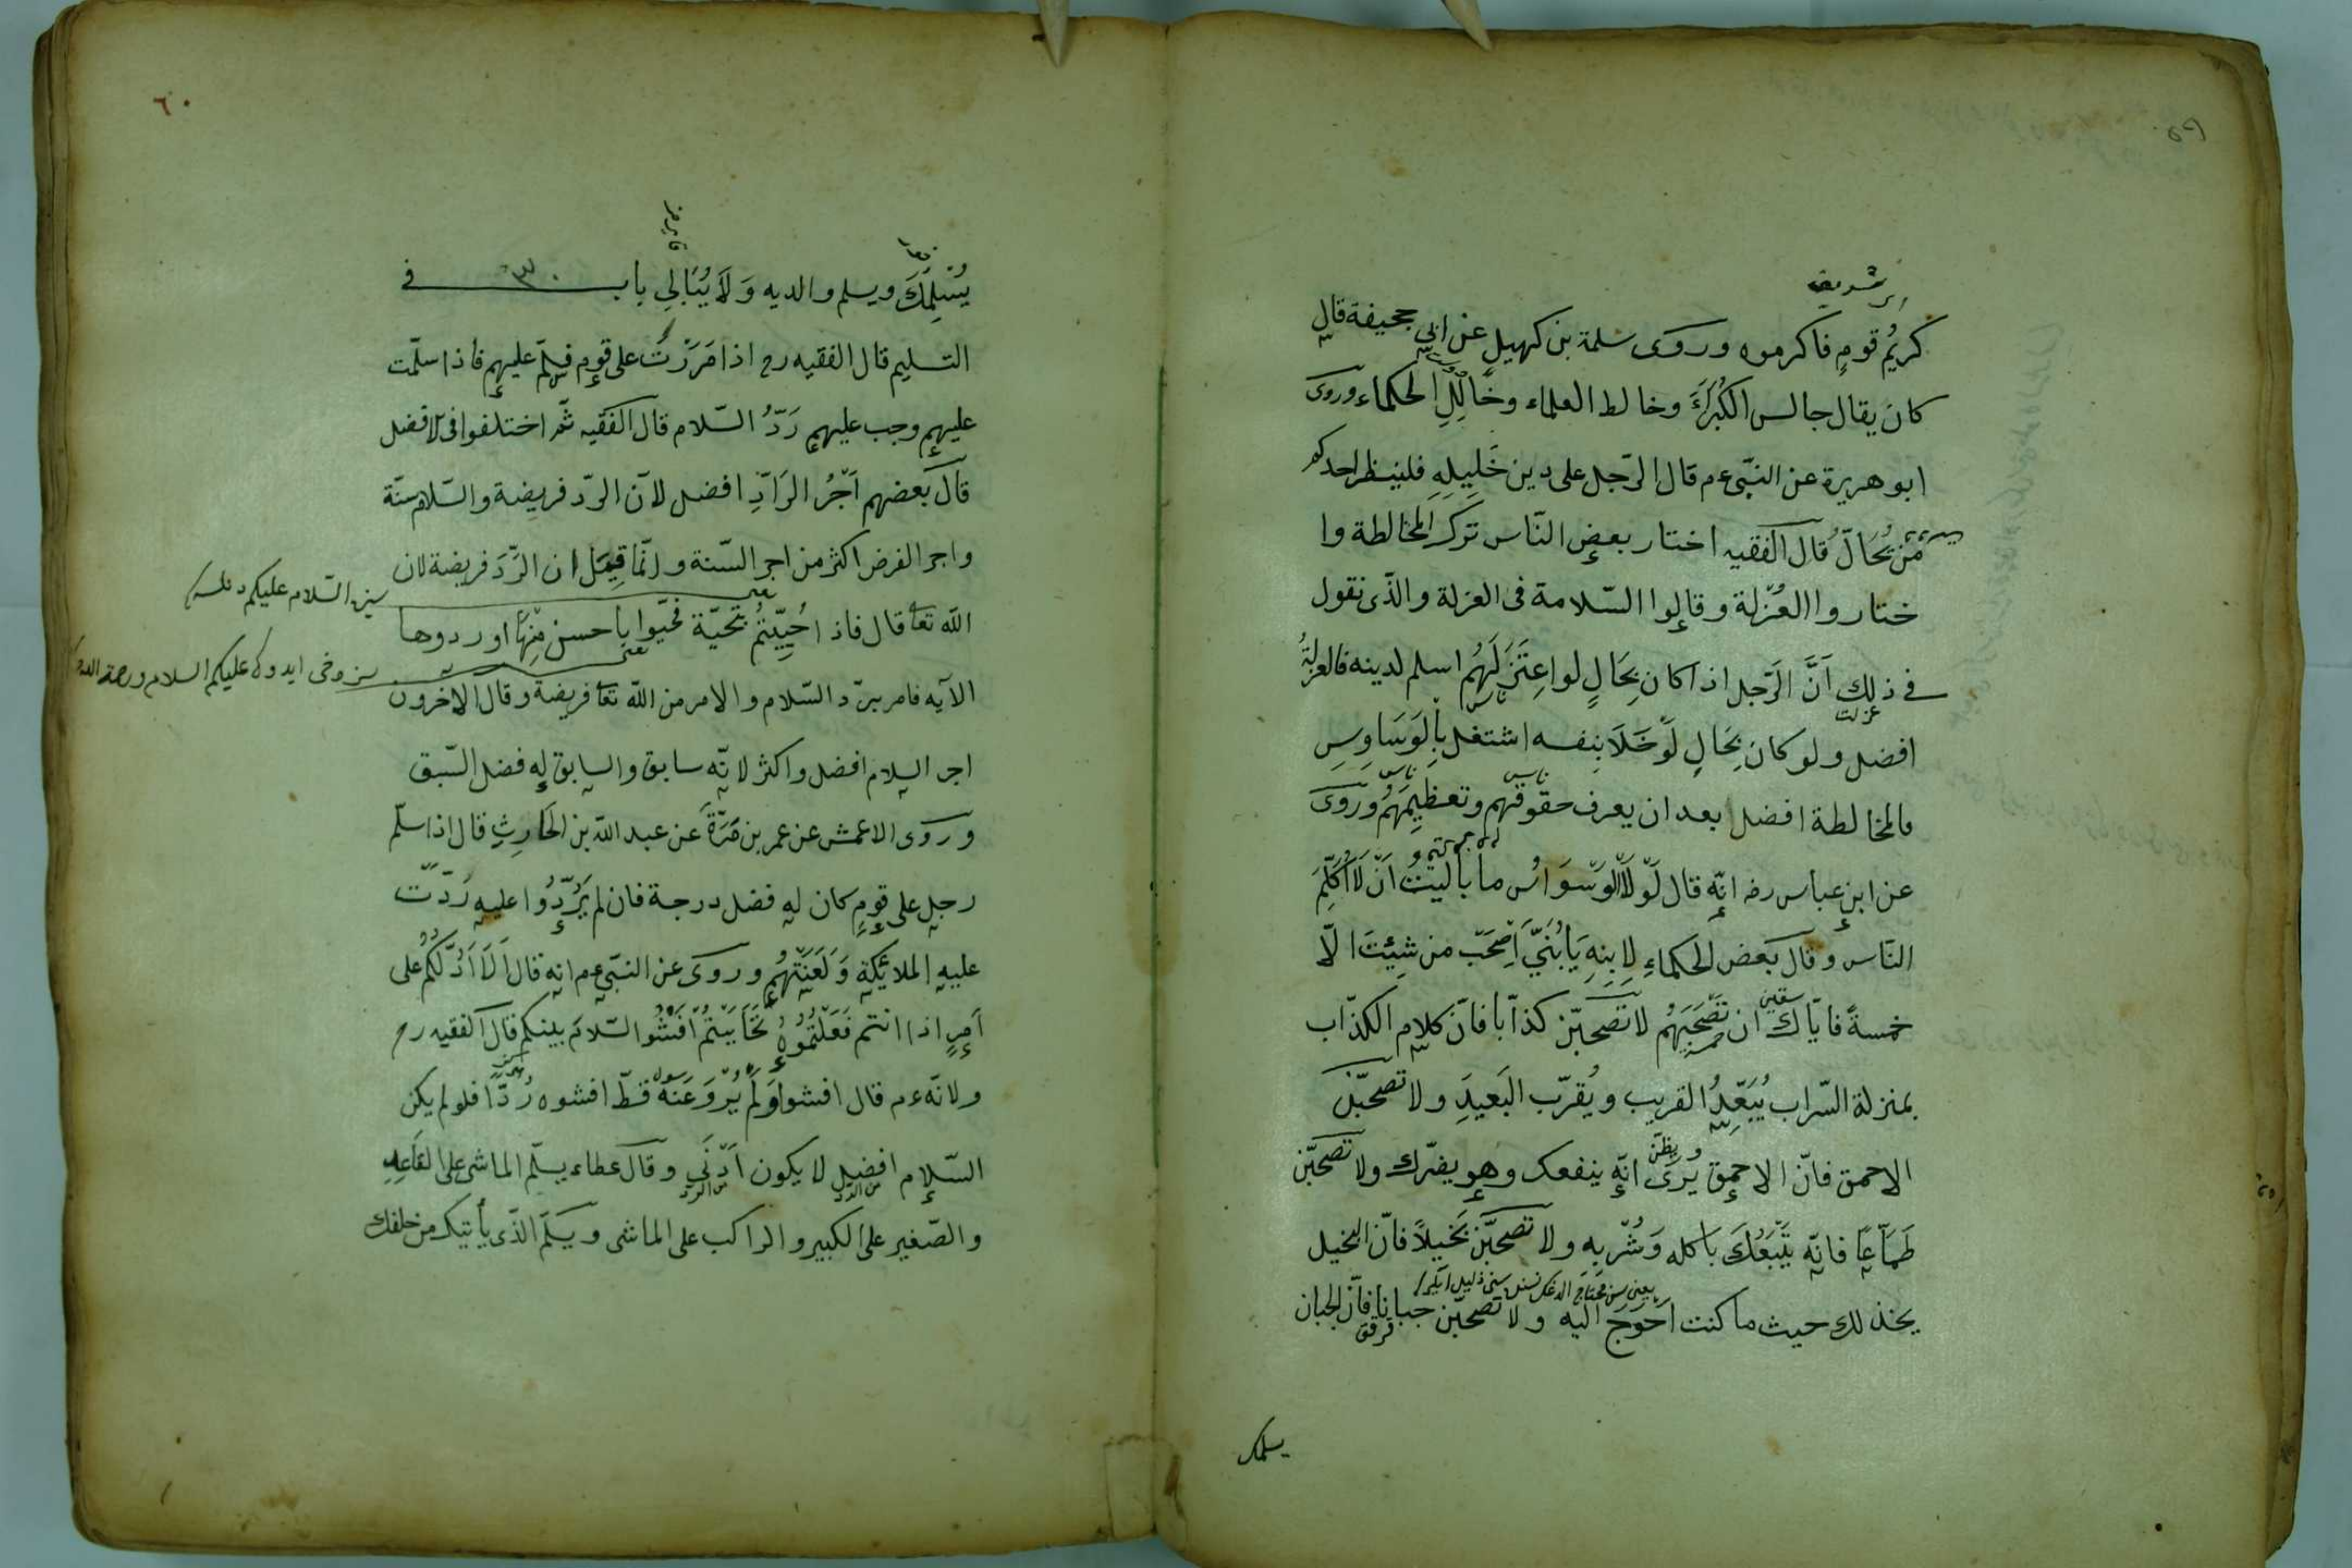 كريم قوم فاكرموه وروى سلمة بن كهيل عن ابي جحيفة قال
كان يقال جالس الكبراء وخالط العلماء وخالل الحكماء وروى
ابو هريرة عن النبي ءم قال الرجل على دين خليله فلينظر احدكم
من يخال قال الفقيه اختار بعض الناس ترك المخالطة وا
ختاروا العزلة وقالوا السلامة فى العزلة والذى نقول
فى ذلك ان الرجل اذا كان بحال لو اعتزلهم اسلم لدينه فالعزلة
افضل ولو كان بحال لو خلا بنفسه اشتغل بالوساوس
فالمخالطة افضل بعد ان يعرف حقوقهم وتعظيمهم وروى
عن ابن عباس رضه انه قال لولا الوسواس ما باليت ان لا اكلم
الناس وقال بعض الحكماء لابنه يا بني اصحب من شئت الا
خمسة فاياك ان تصحبهم لا تصحبن كذابا فان كلام الكذاب
بمنزلة السراب يبعد القريب ويقرب البعيد ولا تصحبن
الاحمق فان الاحمق يرى انه ينفعك وهو يضرك ولا تصحبن
طماعا فانه يتبعك باكله وشربه ولا تصحبن بخيلا فان البخيل
يخذلك حيث ما كنت احوج اليه ولا تصحبن جبانا فان الجبان
يسلمك
٦٠
يسلمك ويسلم والديه ولا يبالي باب ٣٠ فى
التسليم قال الفقيه رح اذا مررت على قوم فسلم عليهم فاذا سلمت
عليهم وجب عليهم رد السلام قال الفقيه ثم اختلفوا فى الافضل
قال بعضهم اجر الراد افضل لان الرد فريضة والسلام سنة
واجر الفرض اكثر من اجر السنة وانما قيل ان الرد فريضة لان
الله تعا قال فاذا حييتم بتحية فحيوا باحسن منها او ردوها
الآيه فامر برد السلام والامر من الله تعا فريضة وقال الاخرون
اجر السلام افضل واكثر لانه سابق والسابق له فضل السبق
وروى الاعمش عن عمر بن مرة عن عبد الله بن الحارث قال اذا سلم
رجل على قوم كان له فضل درجة فان لم يردوا عليه ردت
عليه الملائكة ولعنتهم وروى عن النبي ءم انه قال الا ادلكم على
امر اذا انتم فعلتموه تحاببتم افشوا السلام بينكم قال الفقيه رح
ولانه ءم قال افشوا ولم يرو عنه قط افشوه ردا فلو لم يكن
السلام افضل لا يكون ادنى وقال عطاء يسلم الماشى على القاعد
والصغير على الكبير والراكب على الماشى ويسلم الذى يأتيك من خلفك